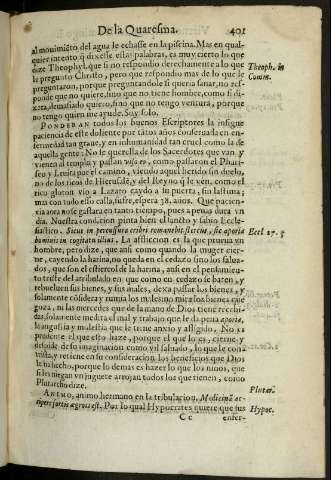 De la Quaresma. 401
al movimiẽto del agua le echasse en la piscina. Mas en qual-
quier intento q̃ dixesse estas palabras, es muy cierto lo que
dize Theophyl. que si no respondio derechamente a lo que
le pregunto Christo, pero que respondio mas de lo que le
preguntaron, porque preguntandole si queria sanar, no res-
ponde que no quiere, sino que no tiene hombre, como si di-
xera, demasiado quiero, sino que no tengo ventura, porque
no tengo quien me ayude. Soy solo.
Theoph. in
Comm.
PONDERAN todos los buenos Escriptores la insigne
paciencia de este doliente por tãtos años conseruada en en-
fermedad tan graue, y en inhumanidad tan cruel como la de
aquella gente: No se querella de los Sacerdotes que van y
vienen al templo y passan
como passaron el Phari-
seo y Leuita por el camino, viendo aquel herido sin duelo,
no de los ricos de Hierusalẽ, y del Rey no q̃ le vẽn, como el
rico gloton vio a Lazaro caydo a su puerta, sin lastima,
mas con todo esso calla, sufre, espera 38. años. Que pacien-
cia aora no se gastara en tanto tiempo, pues a penas dura vn
dia. Nuestra condicion pinta bien el sancto y sabio Eccle-
siastico. Sicut in percussura cribri remanebit stercus, sic aporia
hominis in cogitatu illius, La affliccion es la que prueua vn
hombre, pero dize, que ansi como quando la muger cier-
ne, cayendo la harina, no queda en el cedazo sino los salua-
dos, que son el estiercol de la harina, ansi en el pensamien-
to triste del atribulado en que como en cedazo se baten, y
rebueluen sus bienes, y sus males, dexa passar los bienes, y
solamente cõsidera y rumia los males, no mira los bienes que
goza, ni las mercedes que de la mano de Dios tiene recebi-
das, solamente medita el mal y trabajo que le da pena aporia,
la angustia y molestia que le tiene anxio y affligido. No es
prudente el que esto haze, porque el que lo es, cierne, y
despide de su imaginacion como vil saluado, lo que le con-
trista, y retiene en su consideracion los beneficios que Dios
le ha hecho, porque lo demas es hazer lo que los niños, que
si les niegan vn juguete arrojan todos los que tienen, como
Plutarcho dize.
Eccl. 27. 5
Plutar.
ANIMO, animo hermano en la tribulacion. Medicinã ac-
cipere fortis ægroti est. Por lo qual Hypocrates quiere que sus
Hypoc.
Cc enfer-